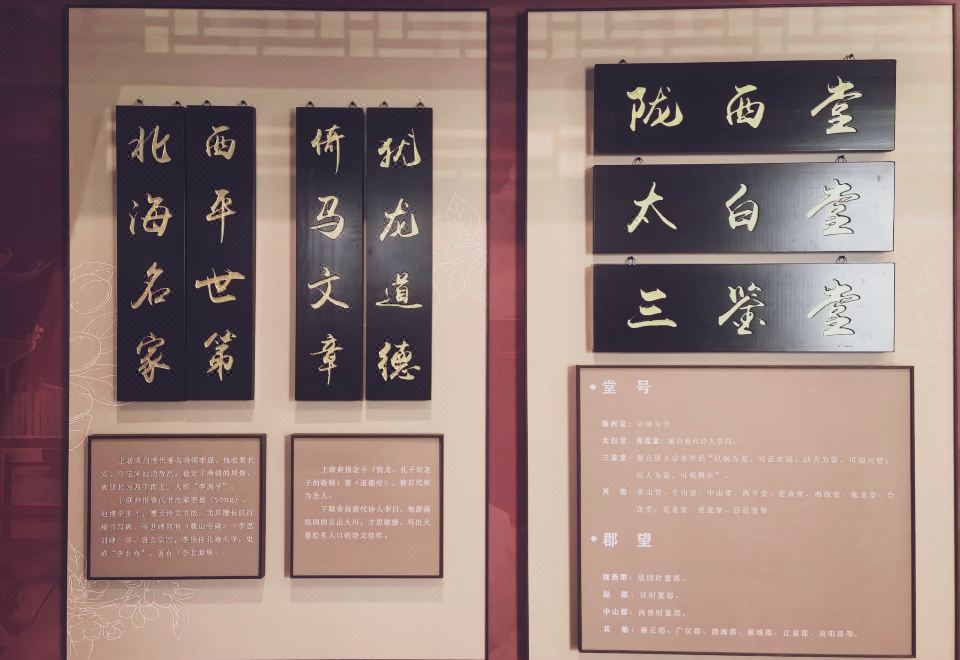 西平世第
北海名家
犹龙道德
倚马文章
陇西堂
太白堂
三鉴堂
上联典指唐代著名将领李晟，他收复长
安，平定朱泚叛乱，稳定了唐朝的局势，
被册封为西平郡王，人称“李西平”。
下联典指唐代书法家李邕（yōng），
他博学多才，擅长诗文书法，尤其擅长以行
楷书写碑，传世碑刻有《麓山寺碑》《李思
训碑》等。唐玄宗时，李邕任北海太守，史
称“李北海”，著有《李北海集》。
上联典指老子（犹龙，孔子对老
子的敬称）著《道德经》，被后代称
为圣人。
下联典指唐代诗人李白，他游遍
祖国的名山大川，才思敏捷，写出大
量脍炙人口的诗文佳作。
• 堂 号
陇西堂：以望为堂
太白堂、青莲堂：源自唐代诗人李白。
三鉴堂：源自唐太宗李世民“以铜为鉴，可正衣冠；以古为鉴，可知兴替；
以人为鉴，可明得失”。
其 他：泰山堂、斗山堂、中山堂、西平堂、宏农堂、西故堂、犹龙堂、
龙堂、见龙堂、登龙堂、百忍堂等。
• 郡 望
陇西郡：战国时置郡。
赵 郡：汉时置郡。
中山郡：西晋时置郡。
其 他：顿丘郡、广汉郡、渤海郡、襄城郡、江夏郡、南阳郡等。